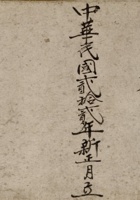 中華民國貳拾貳年新正月立